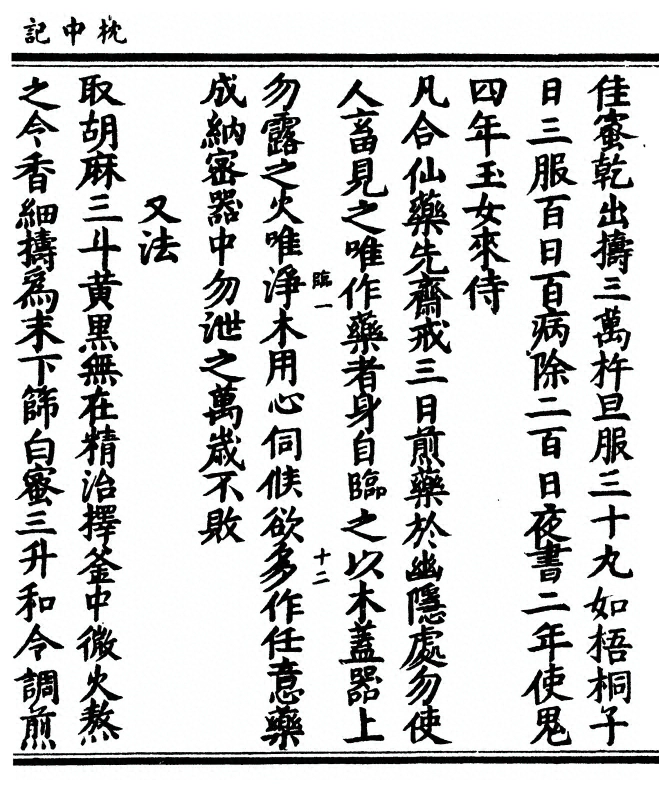 枕中記
佳蜜乾出擣三萬杵旦服三十丸如梧桐子
日三服百日百病除二百日夜書二年使鬼
四年玉女來侍
凡合仙藥先齋戒三日煎藥於幽隱處勿使
人畜見之唯作藥者身自臨之以木蓋器上
臨一
十二
勿露之火唯淨木用心伺候欲多作任意藥
成納密器中勿泄之萬歲不敗
又法
取胡麻三斗黄黑無在精治擇釜中微火熬
之令香細擣為末下篩白蜜三升和令調煎